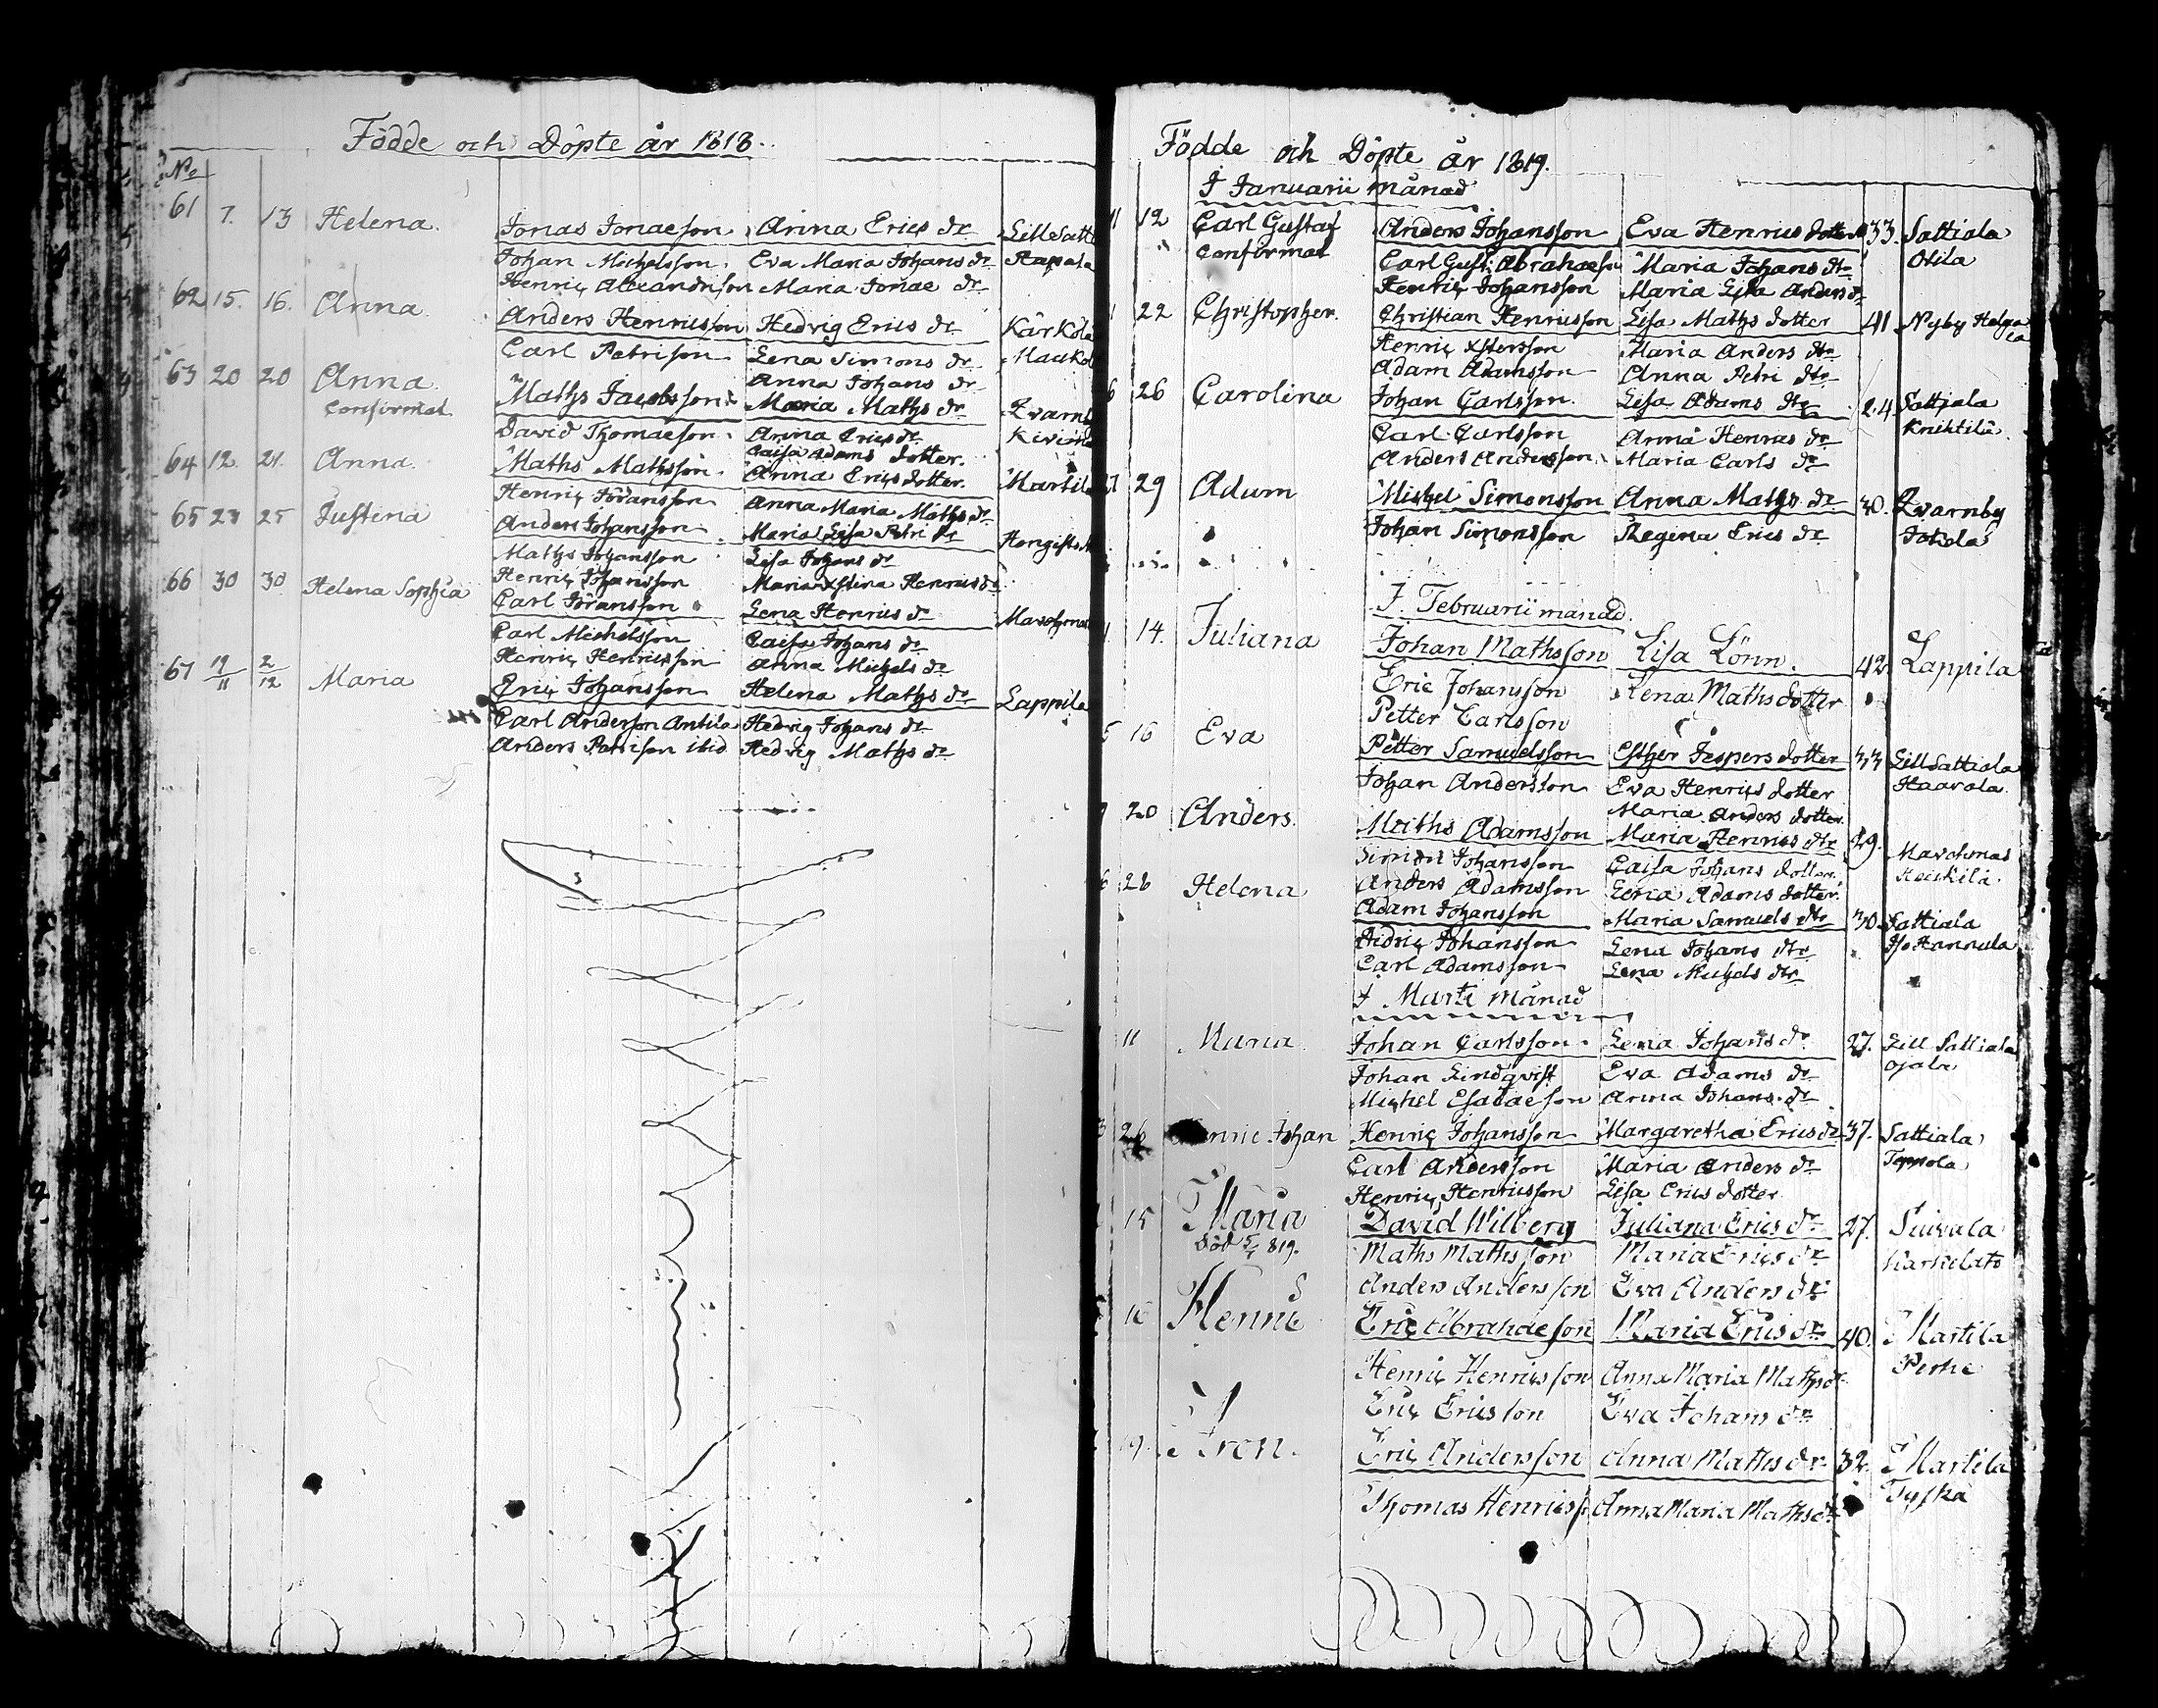 Födde och Döpte år 1818.
No
61 7. 13 Helena. Jonas Jonaeson Anna Erics dr
Johan Michelsson. Eva Maria Johans dr
Henric Alexandrisson Maria Jonae dr
62 15. 16. Anna. Anders Henricsson Hedvig Erics dr Kärköla
Carl Petrison Lena Simons dr
Anna Johans dr
63 20 20 Anna. Maths Jacobsson Maria Maths dr
Confirmat.
David Thomaeson. Anna Erics dr
Caisa Adams dotter.
64 12. 21. Anna. Maths Mathsson. Anna Erics dotter. Martila
Henric Jöransson Anna Maria Maths dr
65 23 25 Justina Anders Johansson Maria Lisa Petri dr
Maths Johansson Lisa Johans dr
Henric Johansson Maria Xstina Henrics dr
66 30 30 Helena Sophia Carl Jöransson Lena Henrics dr
Carl Michelsson Caisa Johans dr
Henric Henricsson Anna Michels dr
67 19/11 2/12 Maria Eric Johansson Helena Maths dr Lappila
Carl Anderson Antila Hedvig Johans dr
Anders Petrison ibid Hedvig Maths dr
Födde och Döpte år 1819.
I Januarii månad
12 Carl Gustaf Anders Johansson Eva Henrics dotter 33. Sattiala
Confirmat Carl Gust. Abrahaeson Maria Johans dtr Olila
Henric Johansson Maria Lisa Anders dr
22 Christopher. Christian Henricsson Lisa Maths dotter 41 Nyby
Henric Xstersson Maria Anders dtr
Adam Adamsson Anna Petri dtr
26 Carolina Johan Carlsson. Lisa Adams dtr 24 Sattiala
Carl Carlsson Anna Henrics dr Knihtilä
Anders Andersson Maria Carls dr
29 Adam Michel Simonsson Anna Maths dr 30. Qvarnby
Johan Simonsson Regina Erics dr Jokela
I Februarii månad.
14. Juliana Johan Mathsson Lisa Lönn. 42 Lappila
Eric Johansson Lena Maths dotter
Petter Carlsson
16 Eva Petter Samuelsson Esther Jespers dotter 33 Lill Sattiala
Johan Andersson Eva Henrics dotter Haarala
Maria Anders dotter
20 Anders. Maths Adamsson Maria Henrics dtr 29.
Simon Johansson Caisa Johans dotter. Heikilä
Anders Adamsson Lena Adams dotter.
28 Helena Adam Johansson Maria Samuels dtr 30. Sattiala
Fidric Johansson Lena Johans dtr
Carl Adamsson Lena Michels dtr
I Martii månad
11 Maria. Johan Carlsson. Lena Johans dr 27. Lill Sattiala
Johan Lindqvist Eva Adams dr Ojala
Michel Esaiaeson Anna Johans. dr
26 Henric Johan Henric Johansson Margaretha Erics dr 37. Sattiala
Carl Andersson Maria Anders dr Teppola
Henric Henricsson Lisa Erics dotter
15 Maria David Wilberg Juliana Erics dr 27.
Död 5/4 819. Maths Mathsson Maria Erics dr
Anders Andersson Eva Anders dr
16 Henric Eric Abrahaeson Maria Erics dr 40. Martila
Henric Henricsson Anna Maria Maths dr Perhe
Eric Ericsson Eva Johans dr
19. Aron. Eric Andersson Anna Maths dr 32. Martila
Thomas Henricss Anna Maria Maths dr Tyska